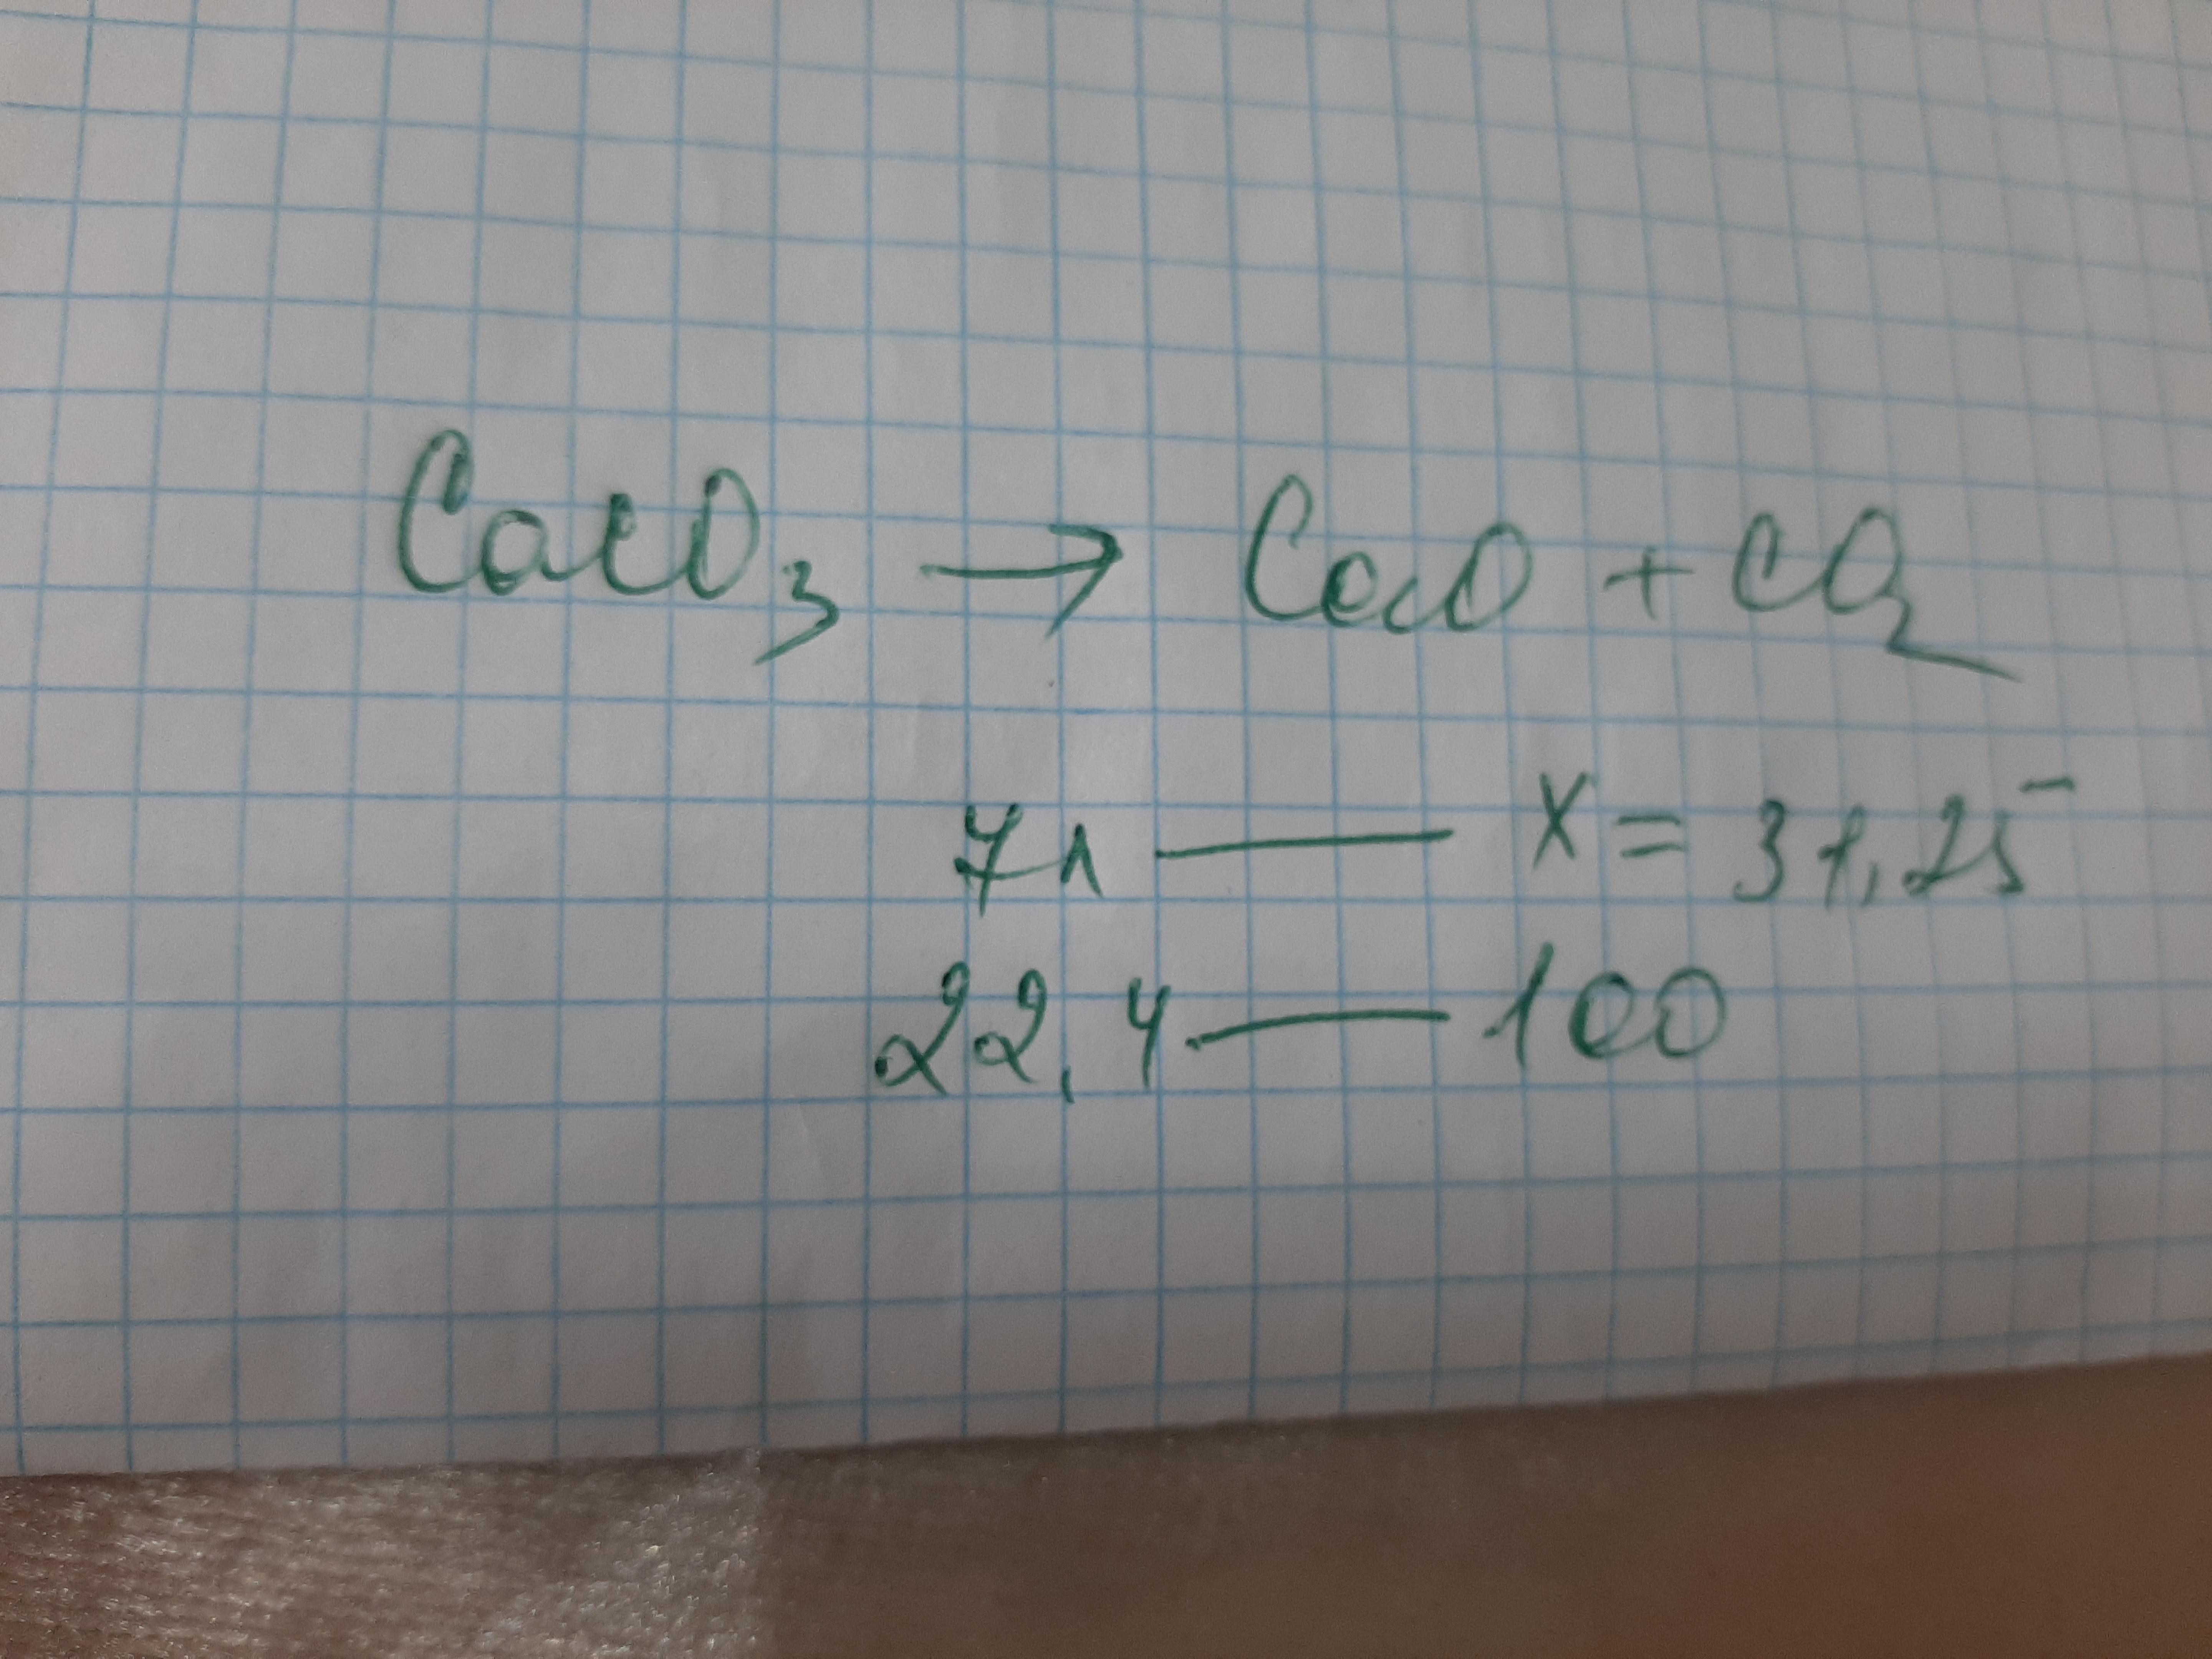 CaCO₃ → CaO + CO₂
7л — x = 31,25
22,4 — 100